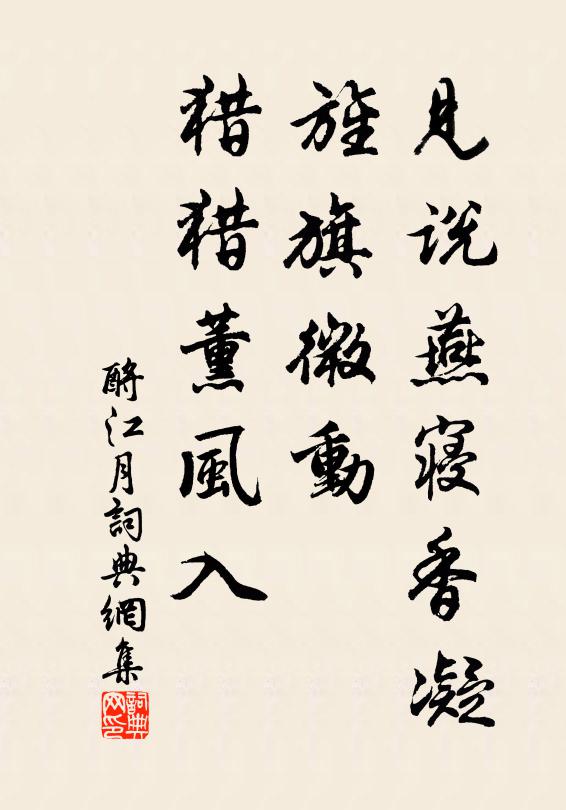 見說燕寢香凝
旌旗微動
猎猎薰風入
酹江月詞典網集
詞典网印